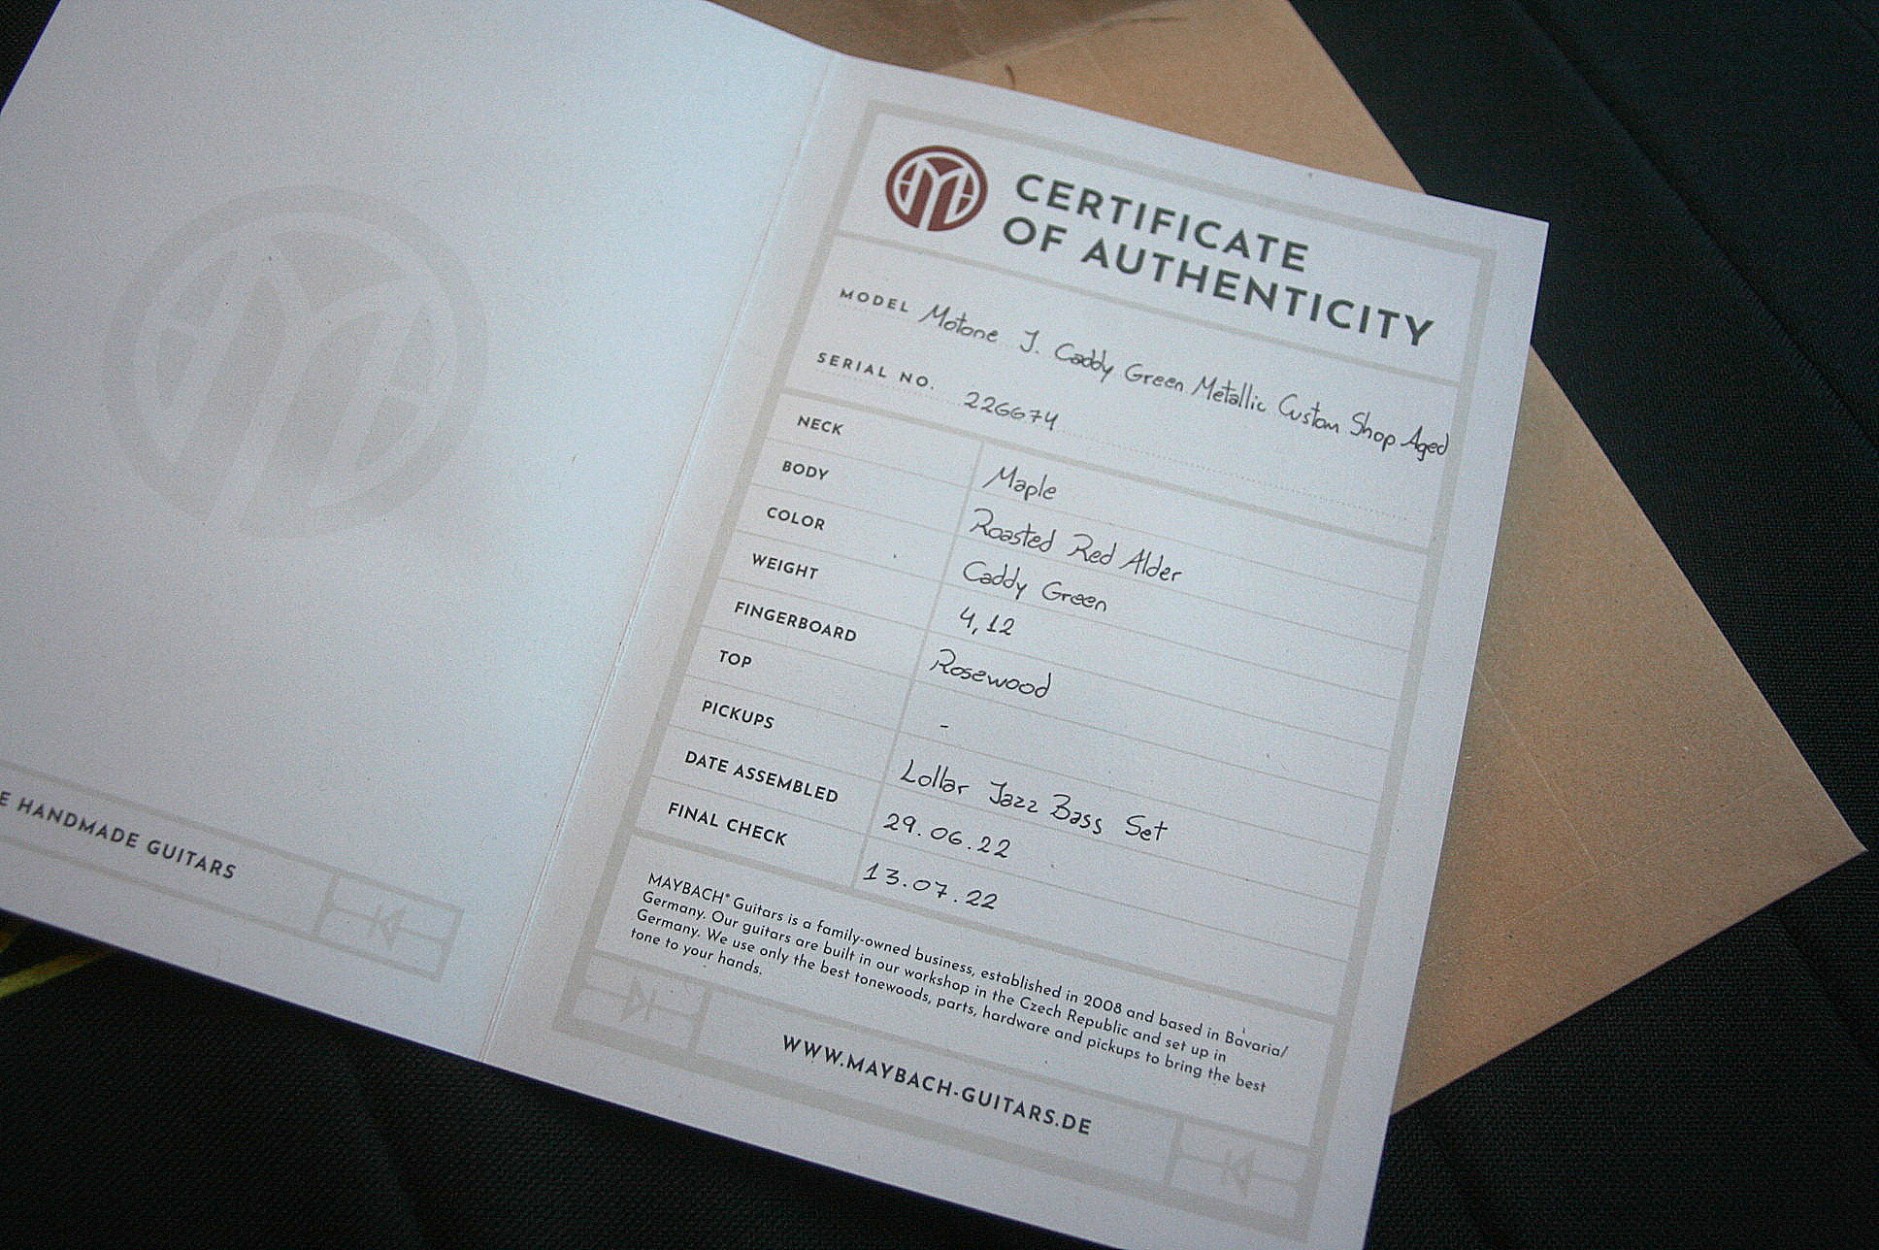 E HANDMADE GUITARS
CERTIFICATE
OF AUTHENTICITY
MODEL Motone J. Caddy Green Metallic Custom Shop Aged
SERIAL NO. 226674
NECK Maple
BODY Roasted Red Alder
COLOR Caddy Green
WEIGHT 4,12
FINGERBOARD Rosewood
TOP -
PICKUPS Lollar Jazz Bass Set
DATE ASSEMBLED 29.06.22
FINAL CHECK 13.07.22
MAYBACH® Guitars is a family-owned business, established in 2008 and based in Bavaria/
Germany. Our guitars are built in our workshop in the Czech Republic and set up in
Germany. We use only the best tonewoods, parts, hardware and pickups to bring the best
tone to your hands.
WWW.MAYBACH-GUITARS.DE